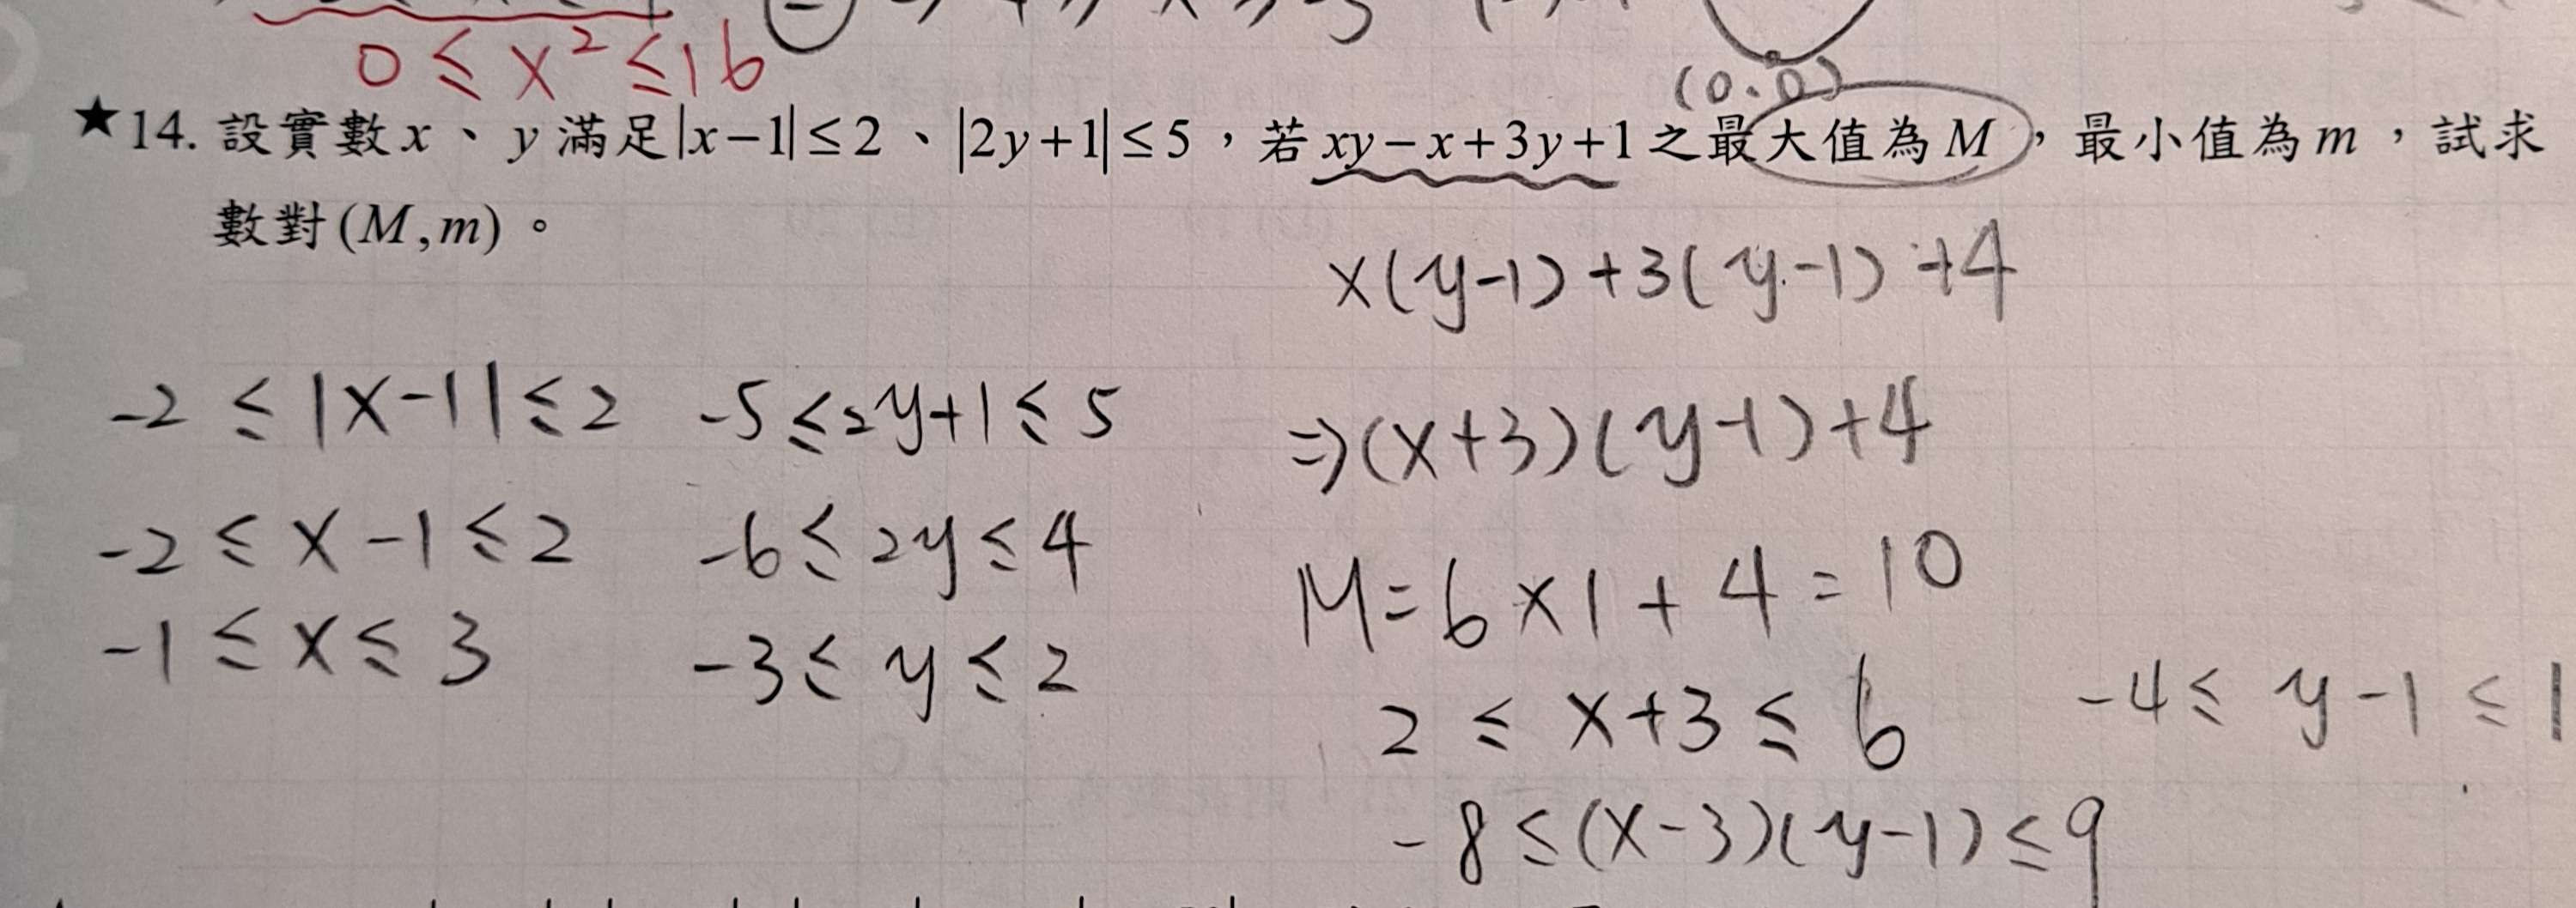 0 ≤ x² ≤ 16
(0.0)
★14. 設實數 x 、 y 滿足|x−1|≤2 、|2y+1|≤5 ，若 xy−x+3y+1 之最大值為 M ，最小值為 m ，試求
數對(M,m) 。
x(y-1)+3(y-1)+4
-2 ≤ |x-1| ≤ 2 -5 ≤ 2y+1 ≤ 5
⇒(x+3)(y-1)+4
-2 ≤ x-1 ≤ 2 -6 ≤ 2y ≤ 4
M=6×1+4=10
-1 ≤ x ≤ 3 -3 ≤ y ≤ 2
2 ≤ x+3 ≤ 6 -4 ≤ y-1 ≤ 1
-8 ≤ (x-3)(y-1) ≤ 9